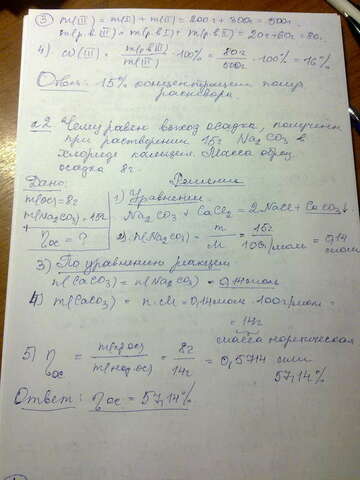 3) m(III) = m(I) + m(II) = 200г + 300г = 500г.
m(р.в III) = m(р.в I) + m(р.в II) = 20г + 60г = 80г.
4) ω(III) = m(р.в III) / m(III) · 100% = 80г / 500г · 100% = 16%
Ответ: 15% концентрация
раствора
№2 Чему равен выход осадка,
при растворении 15г Na2CO3 в
хлориде кальция. Масса обрез.
осадка 8г.
Дано: Решение
m(ос) = 8г
m(Na2CO3) = 15г
ηос = ?
1) Уравнение
Na2CO3 + CaCl2 = 2NaCl + CaCO3↓
2) n(Na2CO3) = m / M = 15г / 106г/моль = 0,14 моль
3) По уравнению реакции
n(CaCO3) = n(Na2CO3) = 0,14 моль
4) m(CaCO3) = n · M = 0,14 моль · 100г/моль =
= 14г
масса
5) ηос = m(пр.ос) / m(ос) = 8г / 14г = 0,5714 или
57,14%
Ответ: ηос = 57,14%